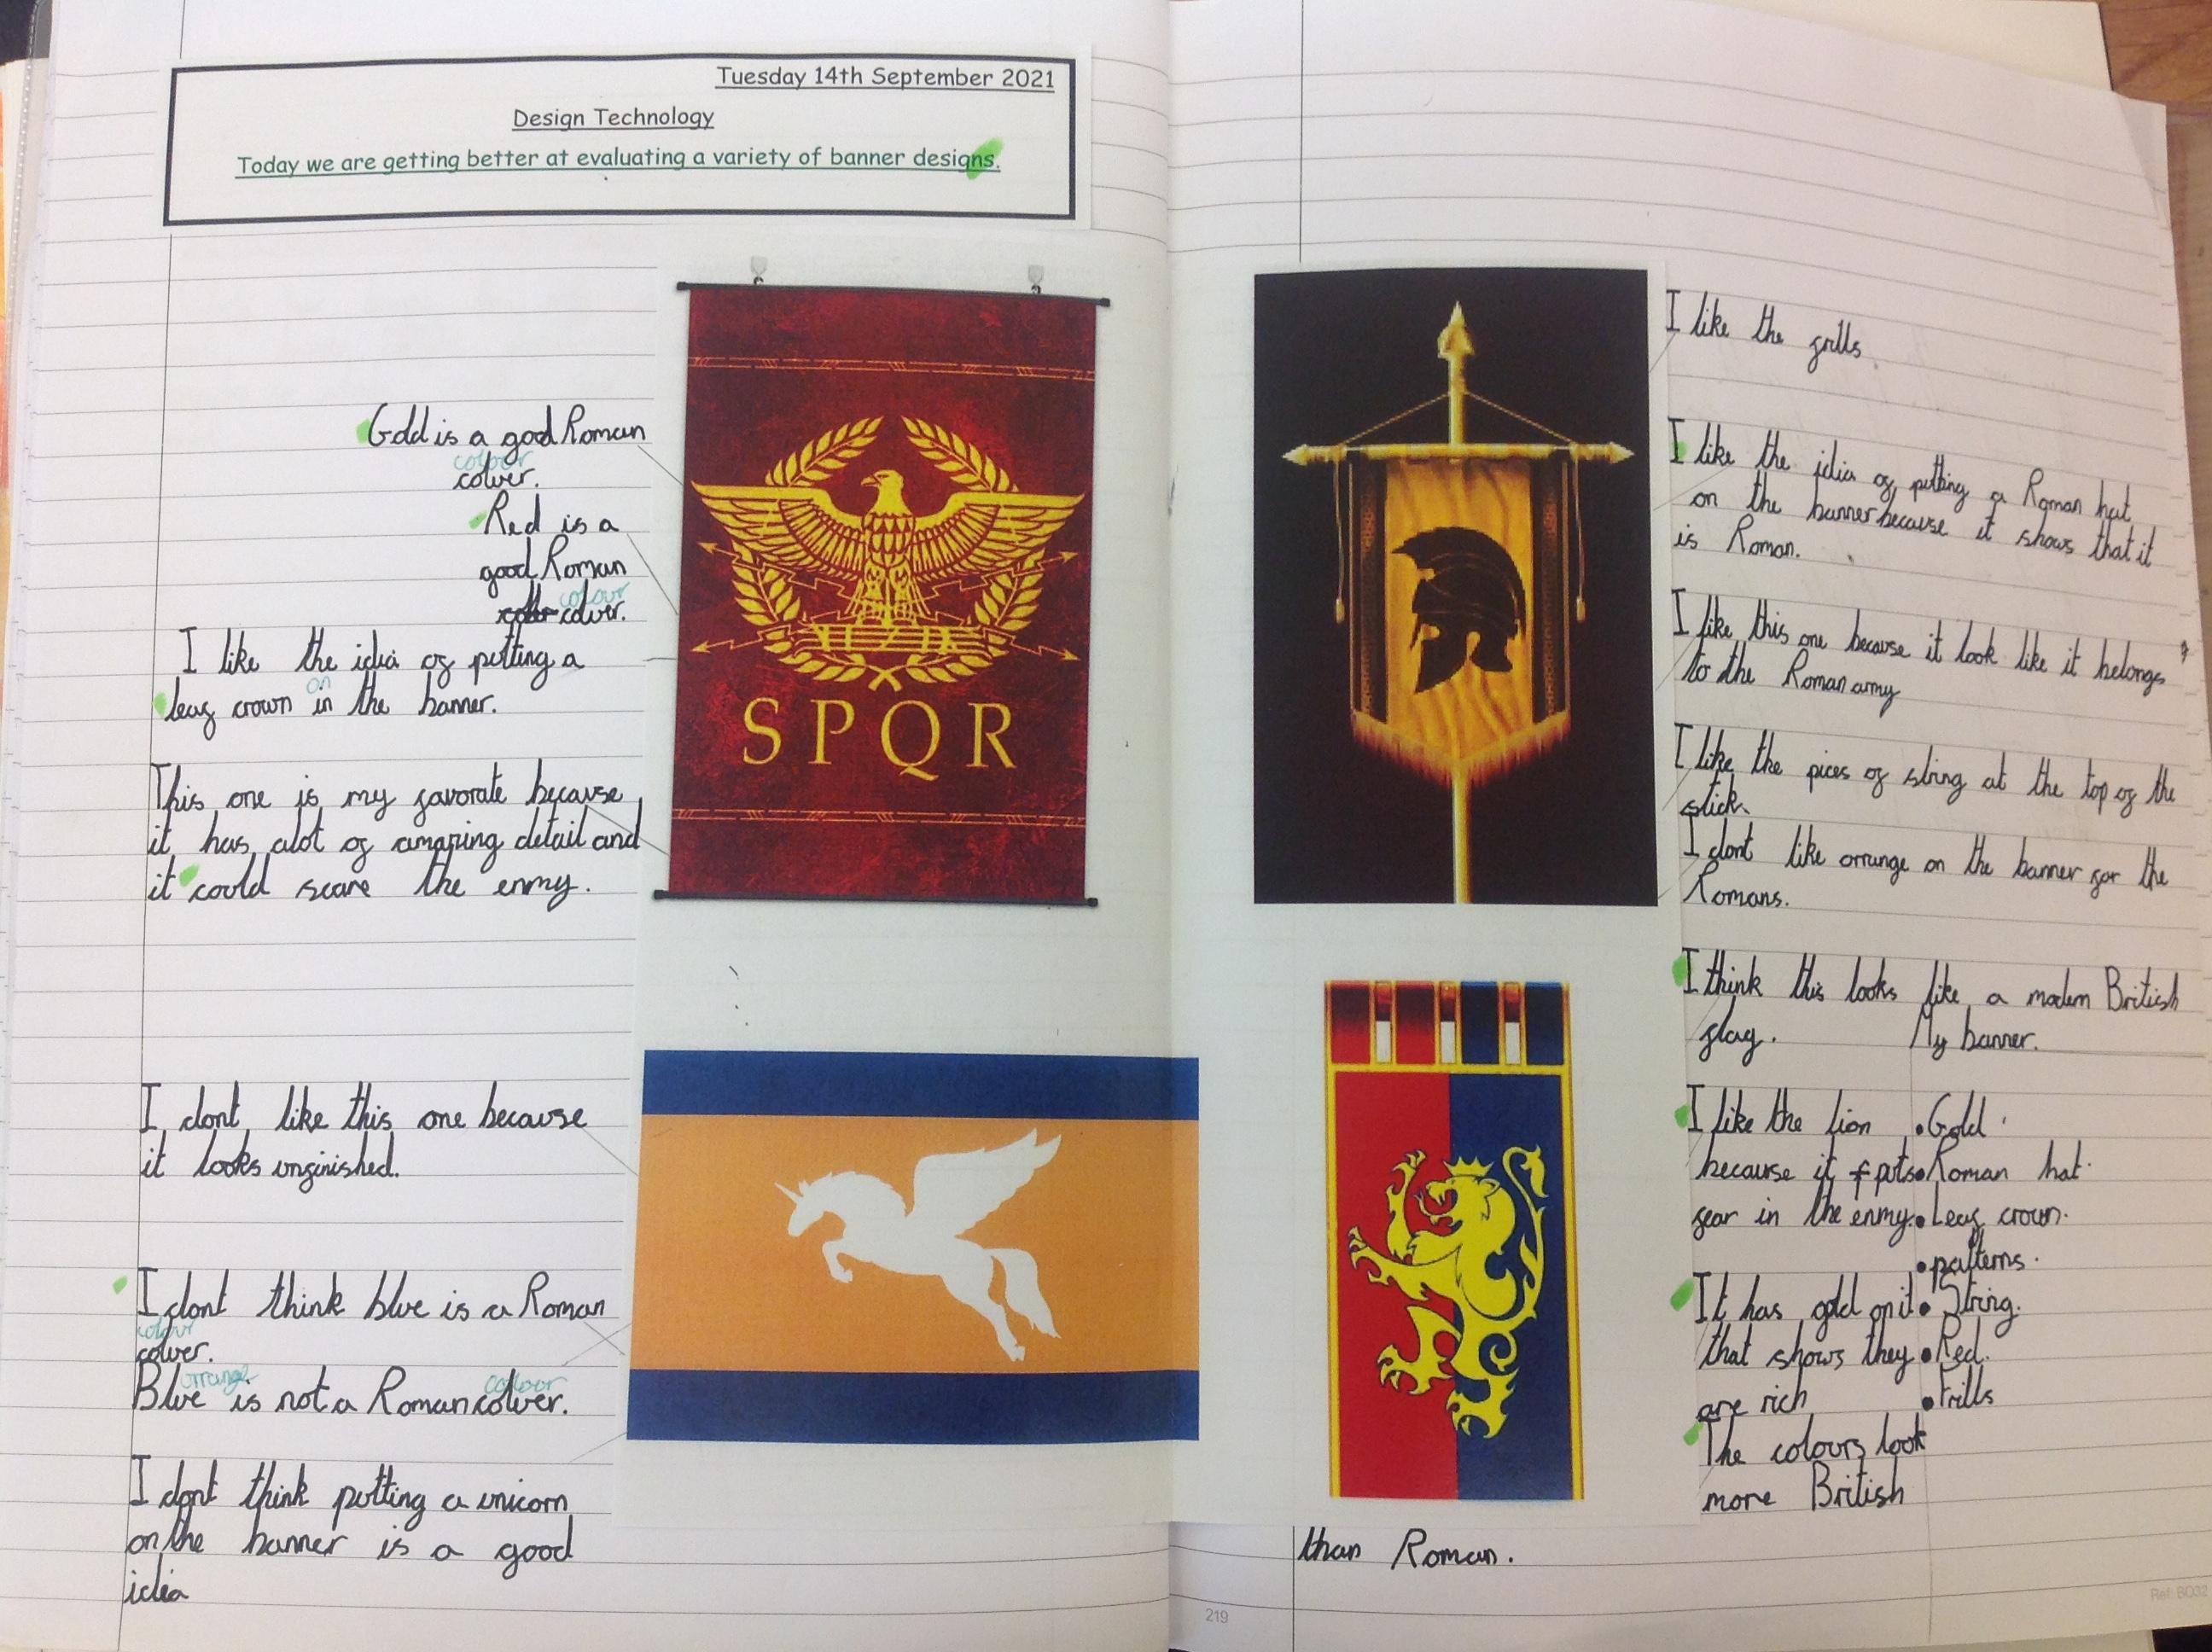 Tuesday 14th September 2021
Design Technology
Today we are getting better at evaluating a variety of banner designs.
Gold is a good Roman
colour
coluer.
Red is a
good Roman
colour
coluer.
I like the idia of putting a
on
leaf crown in the banner.
This one is my favorate because
it has alot of amazing detail and
it could scare the enmy.
SPQR
I dont like this one because
it looks unfinished.
I dont think blue is a Roman
colour
coluer.
orrange colour
Blue is not a Roman coluer.
I dont think putting a unicorn
on the banner is a good
idia
I like the frills
I like the idia of putting a Roman hat
on the banner because it shows that it
is Roman.
I like this one because it look like it belongs
to the Roman army
I like the pices of string at the top of the
stick.
I dont like orrange on the banner for the
Romans.
I think this looks like a modern British
flag.
I like the lion
because it puts
fear in the enmy.
It has gold on it
that shows they
are rich
The colours look
more British
than Roman.
My banner.
•Gold
•Roman hat.
•Leaf crown.
•patterns.
•String.
•Red.
•Frills
219
Ref: BO32